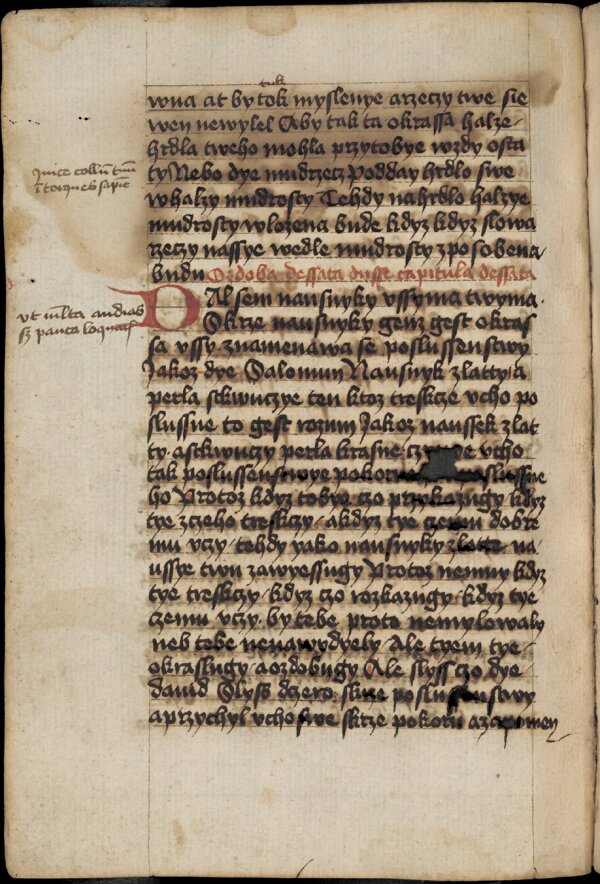 wna at by tok myslenye arzeczy twe sie
wen newylel Aby tak ta okrassa halze
hrdla tweho mohla przytobye wzdy osta
ty Nebo dye mudrzecz Podday hrdlo swe
whalzy mudrosty Tehdy nahrdlo halzye
mudrosty wlozena bude kdyz kdyz slowa
rzeczy nassye wedle mudrosty zposobena
budu Ozdoba dessata dusse capitula dessata
Dal sem nausnyky vssyma twyma
Skrze nausnyky genz gest okras
sa vssy znamenawa se poslussenstwy
Jakoz dye Salomun Nausnyk zlatty a
perla stkwuczye ten ktoz treskcze vcho po
slussne to gest rozum Jakoz naussek zlat
ty astkwuczy perla krasne vcho
tak poslussenstwye
ho Protoz kdyz tobye czo przykazugy kdyz
tye zczeho treskczy akdyz tye czemu dobre
mu vczy tehdy yako nausnyky zlatte na
ussye twu zawyessugy Protoz nemny kdyz
tye treskczy kdyz czo rozkazugy kdyz tye
czemu vczy by tebe proto nemylowaly
neb tebe nenawydyely Ale tyem tye
okraslugy aozdobugy Ale slyss czo dye
dauid Slyss dczero skrze poslussenstwy
aprzychyl vcho swe skrze pokoru azapomen
ut multa audias
sz pauca loquaris